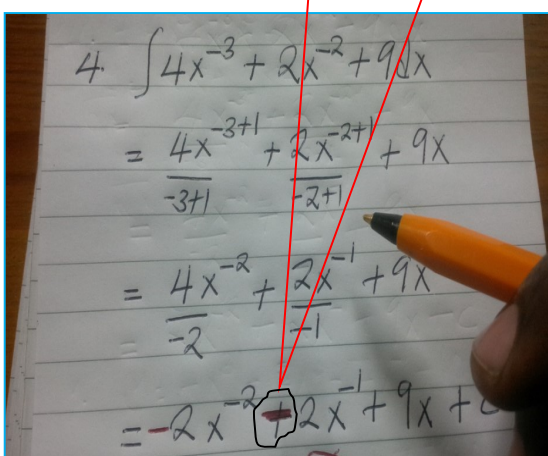 4. ∫4x⁻³ + 2x⁻² + 9dx
= 4x⁻³⁺¹/-3+1 + 2x⁻²⁺¹/-2+1 + 9x
= 4x⁻²/-2 + 2x⁻¹/-1 + 9x
= -2x⁻² - 2x⁻¹ + 9x +